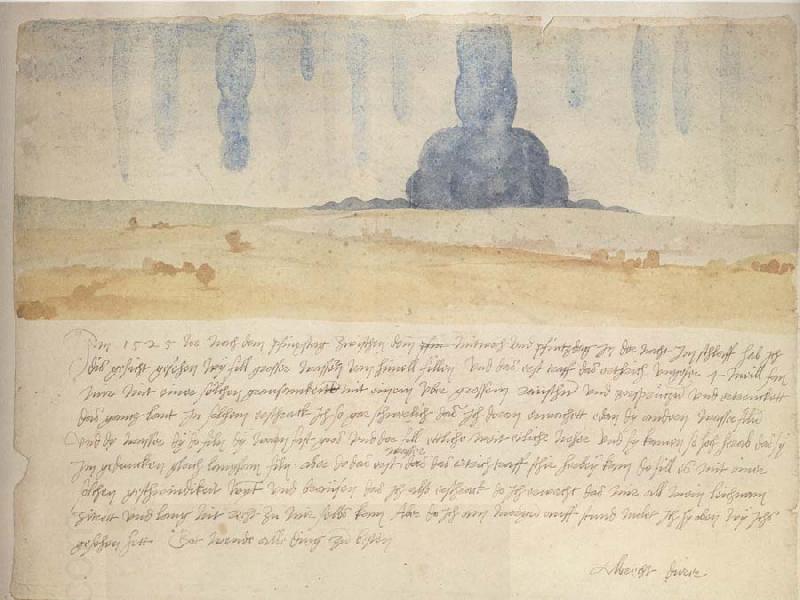 Im 1525 Jor nach dem pfinxstag zwischen dem mitwoch und pfintzdag in der nacht im schlaff hab ich
dis gesicht gesehen wy fill grosser wassern vom himell fillen Und das erst traff das erthrich ungefer 4 meill fan
mir mit einer solchen grausamkeitt mit einem uber grossem raüschn und zersprützn und ertrenckett
das gannz lant In solchem erschrack ich so gar schwerlich das ich doran erwachett e dan dy andern wasser filn
Und dy wasser dy do filn dy warn fast gros und der fill ettliche weit etliche neher und sy kamen so hoch herab das sy
im gedancken gleich langsam filn aber do das erst wasser das das erthrich traff schir herbey kam do fill es mit einer
solchen geschwindikeit wynt und braüsen das ich also erschrack do ich erwacht das mir all mein leichnam
zitrett und lang nit recht zu mir selbs kam Aber do ich am morgn auff stund molet ich hy oben wy ichs
gesehen hett Got wende alle ding zu besten
Albrecht dürer